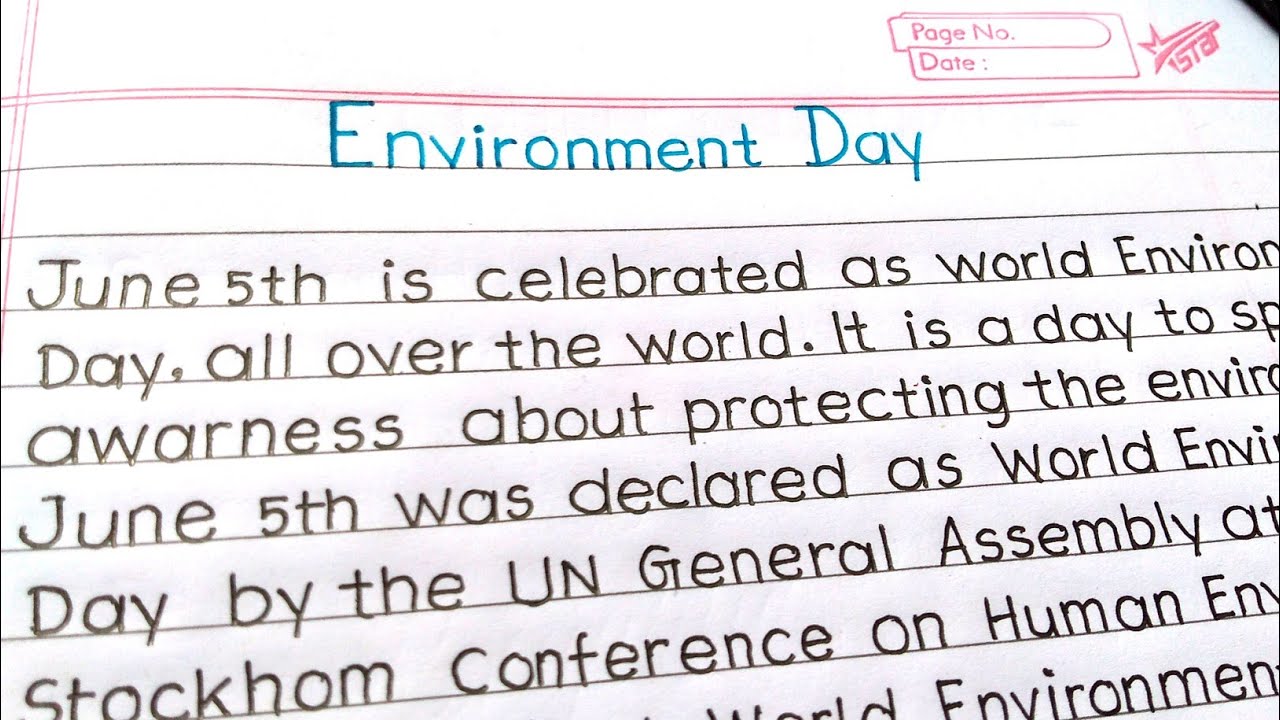 Page No.
Date :
Star
Environment Day
June 5th is celebrated as world Environ
Day, all over the world. It is a day to sp
awarness about protecting the enviro
June 5th was declared as World Envi
Day by the UN General Assembly at
Stockhom Conference on Human Env
World Environmen